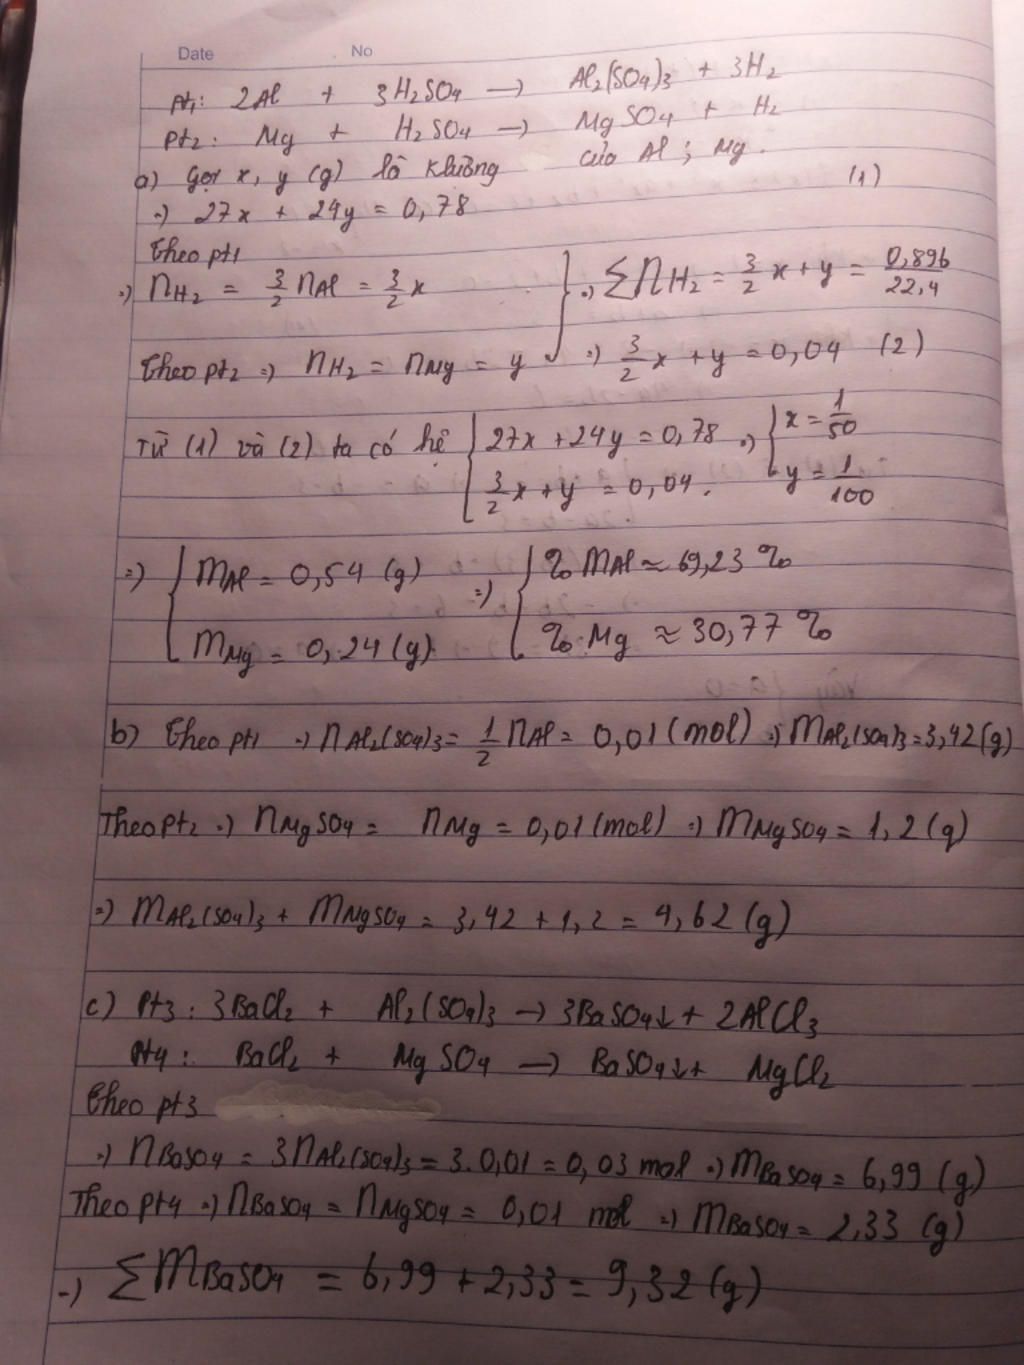 Date No
Pt1: 2Al + 3H2SO4 -> Al2(SO4)3 + 3H2
Pt2: Mg + H2SO4 -> MgSO4 + H2
a) Gọi x, y (g) là klượng của Al; Mg.
=) 27x + 24y = 0,78 (1)
Theo pt1
=) nH2 = 3/2 nAl = 3/2 x } =) ∑nH2 = 3/2 x + y = 0,896/22,4
Theo pt2 =) nH2 = nMg = y =) 3/2 x + y = 0,04 (2)
Từ (1) và (2) ta có hệ { 27x + 24y = 0,78 =) { x = 1/50
3/2 x + y = 0,04. y = 1/100
=) { mAl = 0,54 (g) =) { % mAl ≈ 69,23 %
mMg = 0,24 (g). % Mg ≈ 30,77 %
b) Theo pt1 =) nAl2(SO4)3 = 1/2 nAl = 0,01 (mol) =) mAl2(SO4)3 = 3,42 (g)
Theo pt2 =) nMgSO4 = nMg = 0,01 (mol) =) mMgSO4 = 1,2 (g)
=) mAl2(SO4)3 + mMgSO4 = 3,42 + 1,2 = 4,62 (g)
c) Pt3: 3BaCl2 + Al2(SO4)3 -> 3BaSO4↓ + 2AlCl3
Pt4: BaCl2 + MgSO4 -> BaSO4↓ + MgCl2
Theo pt3
=) nBaSO4 = 3nAl2(SO4)3 = 3.0,01 = 0,03 mol =) mBaSO4 = 6,99 (g)
Theo pt4 =) nBaSO4 = nMgSO4 = 0,01 mol =) mBaSO4 = 2,33 (g)
=) ∑mBaSO4 = 6,99 + 2,33 = 9,32 (g)